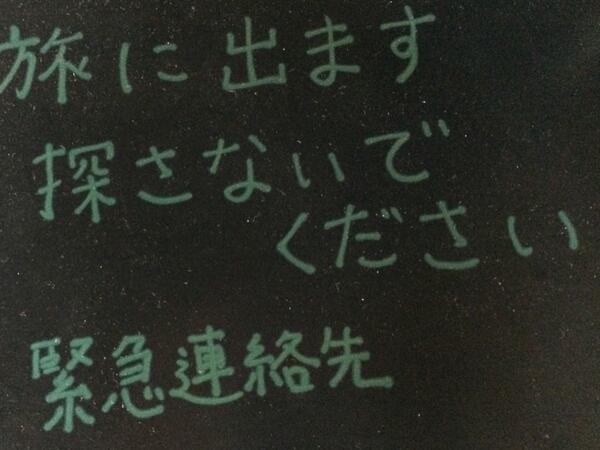 旅に出ます
探さないで
ください
緊急連絡先